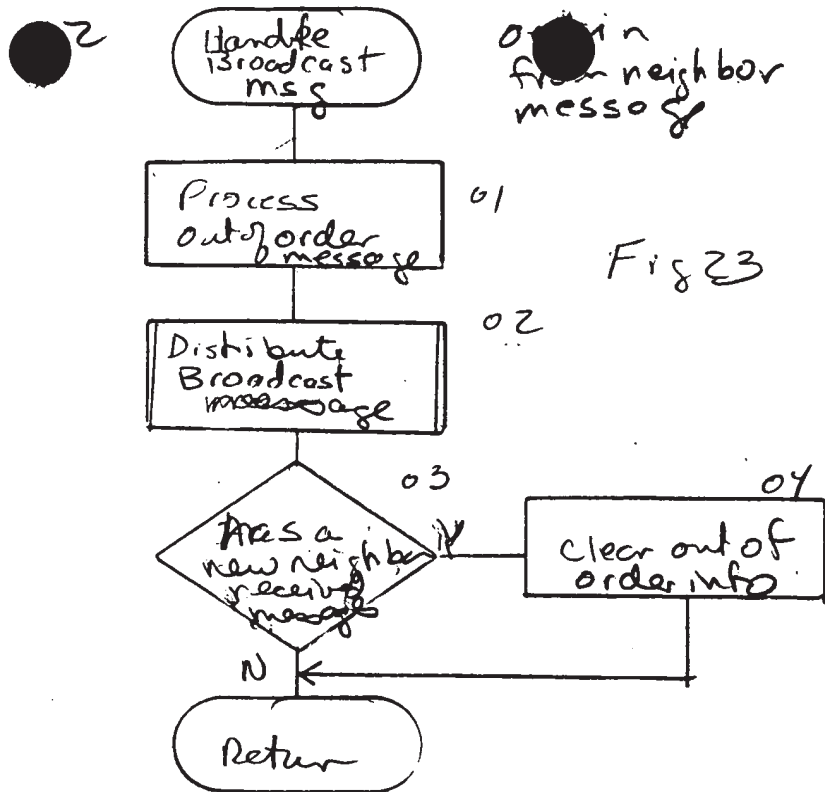 2
Handle
Broadcast
msg
from neighbor
message
Process
out of order
message
01
Fig 23
Distribute
Broadcast
message
02
03
a
new neighbor
received
message
Y
04
clear out of
order info
N
Return